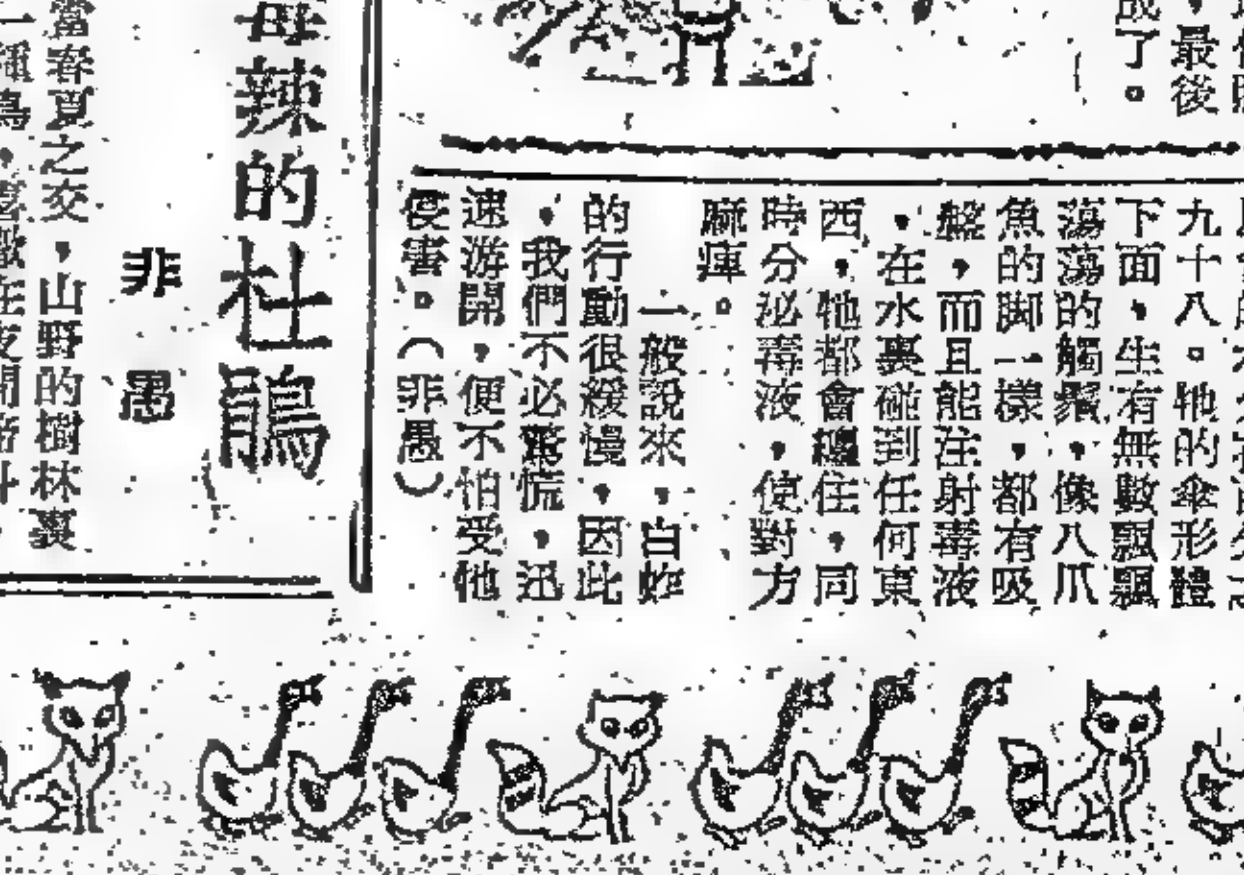 ，最後
成了。
九十八。牠的傘形體
下面，生有無數飄飄
蕩蕩的觸鬚，像八爪
魚的脚一樣，都有吸
盤，而且能注射毒液
，在水裏碰到任何東
西，牠都會纏住，同
時分泌毒液，使對方
麻痺。
一般說來，白蚱
的行動很緩慢，因此
，我們不必驚慌，迅
速游開，便不怕受牠
侵害。（非愚）
辣的杜鵑
非愚
當春夏之交，山野的樹林裏
一種鳥，喜歡在夜間啼叫，